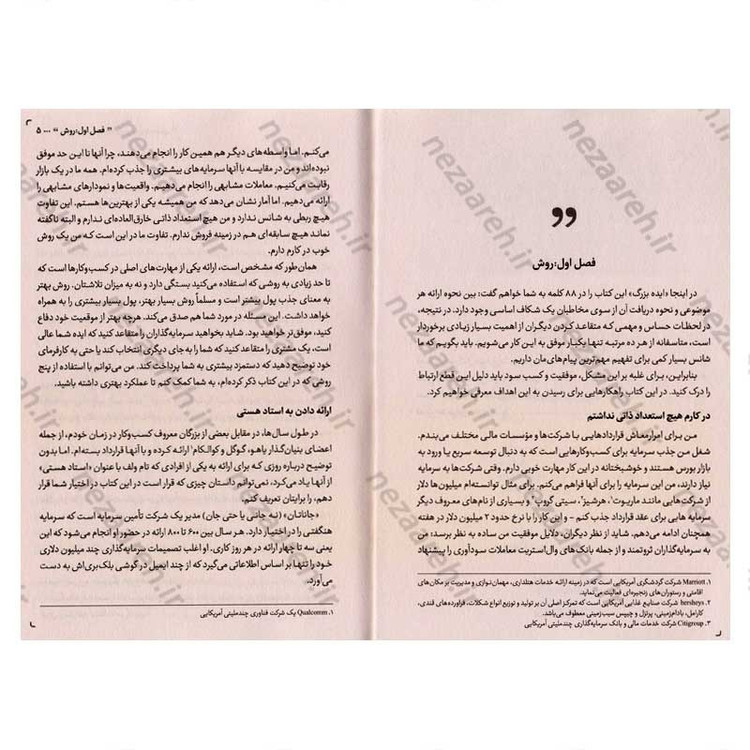 فصل اول: روش
در اینجا «ایده بزرگ» این کتاب را در ۸۸ کلمه به شما خواهم گفت: بین نحوه ارائه هر
موضوعی و نحوه دریافت آن از سوی مخاطبان یک شکاف اساسی وجود دارد. در نتیجه،
در لحظات حساس و مهمی که متقاعد کردن دیگران از اهمیت بسیار زیادی برخوردار
است، متاسفانه از هر ده مرتبه تنها یکبار موفق به این کار می‌شویم. باید بگویم که ما
شانس بسیار کمی برای تفهیم مهم‌ترین پیام‌های‌مان داریم.
بنابراین، برای غلبه بر این مشکل، موفقیت و کسب سود باید دلیل این قطع ارتباط
را درک کنید. در این کتاب راهکارهایی برای رسیدن به این اهداف معرفی خواهیم کرد.
در کارم هیچ استعداد ذاتی نداشتم
من برای امرارمعاش قراردادهایی با شرکت‌ها و مؤسسات مالی مختلف می‌بندم.
شغل من جذب سرمایه برای کسب‌وکارهایی است که به دنبال توسعه سریع یا ورود به
بازار بورس هستند و خوشبختانه در این کار مهارت خوبی دارم. وقتی شرکت‌ها به سرمایه
نیاز دارند، من این سرمایه را برای آنها فراهم می‌کنم. برای مثال توانسته‌ام میلیون‌ها دلار
از شرکت‌هایی مانند ماریوت۱، هرشیز۲، سیتی گروپ۳ و بسیاری از نام‌های معروف دیگر
سرمایه هایی برای عقد قرارداد جذب کنم - و این کار را با نرخ حدود ۲ میلیون دلار در هفته
همچنان ادامه می‌دهم. شاید از نظر دیگران، دلایل موفقیت من ساده به نظر برسد: من
به سرمایه‌گذاران ثروتمند و از جمله بانک های وال‌استریت معاملات سودآوری را پیشنهاد
۱. Marriott شرکت گردشگری آمریکایی است که در زمینه ارائه خدمات هتلداری، مهمان‌نوازی و مدیریت بر مکان‌های
اقامتی و رستوران‌های زنجیره‌ای فعالیت می‌نماید.
۲. hersheys شرکت صنایع غذایی آمریکایی است که تمرکز اصلی آن بر تولید و توزیع انواع شکلات، فراورده‌های قندی،
کارامل، بادام‌زمینی، پرتزل و چیپس سیب‌زمینی معطوف می‌باشد.
۳. Citigroup شرکت خدمات مالی و بانک سرمایه‌گذاری چندملیتی آمریکایی
" فصل اول: روش " ... ۵
می‌کنم. اما واسطه‌های دیگر هم همین کار را انجام می‌دهند، چرا آنها تا این حد موفق
نبوده‌اند و من در مقایسه با آنها سرمایه‌های بیشتری را جذب کرده‌ام. همه ما در یک بازار
رقابت می‌کنیم. معاملات مشابهی را انجام می‌دهیم. واقعیت‌ها و نمودارهای مشابهی را
ارائه می‌دهیم. اما آمار نشان می‌دهد که من همیشه یکی از بهترین‌ها هستم. این تفاوت
هیچ ربطی به شانس ندارد و من هیچ استعداد ذاتی خارق‌العاده‌ای ندارم و البته ناگفته
نماند هیچ سابقه‌ای هم در زمینه فروش ندارم. تفاوت ما در این است که من یک روش
خوب در کارم دارم.
همان‌طور که مشخص است، ارائه یکی از مهارت‌های اصلی در کسب‌وکارها است که
تا حد زیادی به روشی که استفاده می‌کنید بستگی دارد و نه به میزان تلاشتان. روش بهتر
به معنای جذب پول بیشتر است و مسلماً روش بسیار بهتر، پول بسیار بیشتری را به همراه
خواهد داشت. این مسئله در مورد شما هم صدق می‌کند. هرچه بهتر از موقعیت خود دفاع
کنید، موفق‌تر خواهید بود. شاید بخواهید سرمایه‌گذاران را متقاعد کنید که ایده شما عالی
است، یک مشتری را متقاعد کنید که شما را به جای دیگری انتخاب کند یا حتی به کارفرمای
خود توضیح دهید که دستمزد بیشتری به شما پرداخت کند. من می‌توانم با استفاده از پنج
روشی که در این کتاب ذکر کرده‌ام، به شما کمک کنم تا عملکرد بهتری داشته باشید.
ارائه دادن به استاد هستی
در طول سال‌ها، در مقابل بعضی از بزرگان معروف کسب‌وکار در زمان خودم، از جمله
اعضای بنیان‌گذار یاهو، گوگل و کوالکام۱ ارائه کرده و با آنها قرارداد بسته‌ام. اما بدون
توضیح درباره روزی که برای ارائه به یکی از افرادی که تام ولف با عنوان «استاد هستی»
از آنها یاد می‌کرد، نمی‌توانم داستان چیزی که قرار است در این کتاب در اختیار شما قرار
دهم، را برایتان تعریف کنم.
«جاناتان» (نه جانی یا حتی جان) مدیر یک شرکت تأمین سرمایه است که سرمایه
هنگفتی را در اختیار دارد. هر سال بین ۶۰۰ تا ۸۰۰ ارائه در حضور او انجام می‌شود که این
یعنی سه تا چهار ارائه در هر روز کاری. او اغلب تصمیمات سرمایه‌گذاری چند میلیون دلاری
خود را تنها بر اساس اطلاعاتی می‌گیرد که از چند ایمیل در گوشی بلک‌بری‌اش به دست
می‌آورد.
۱. Qualcomm یک شرکت فناوری چندملیتی آمریکایی
nezaareh.ir